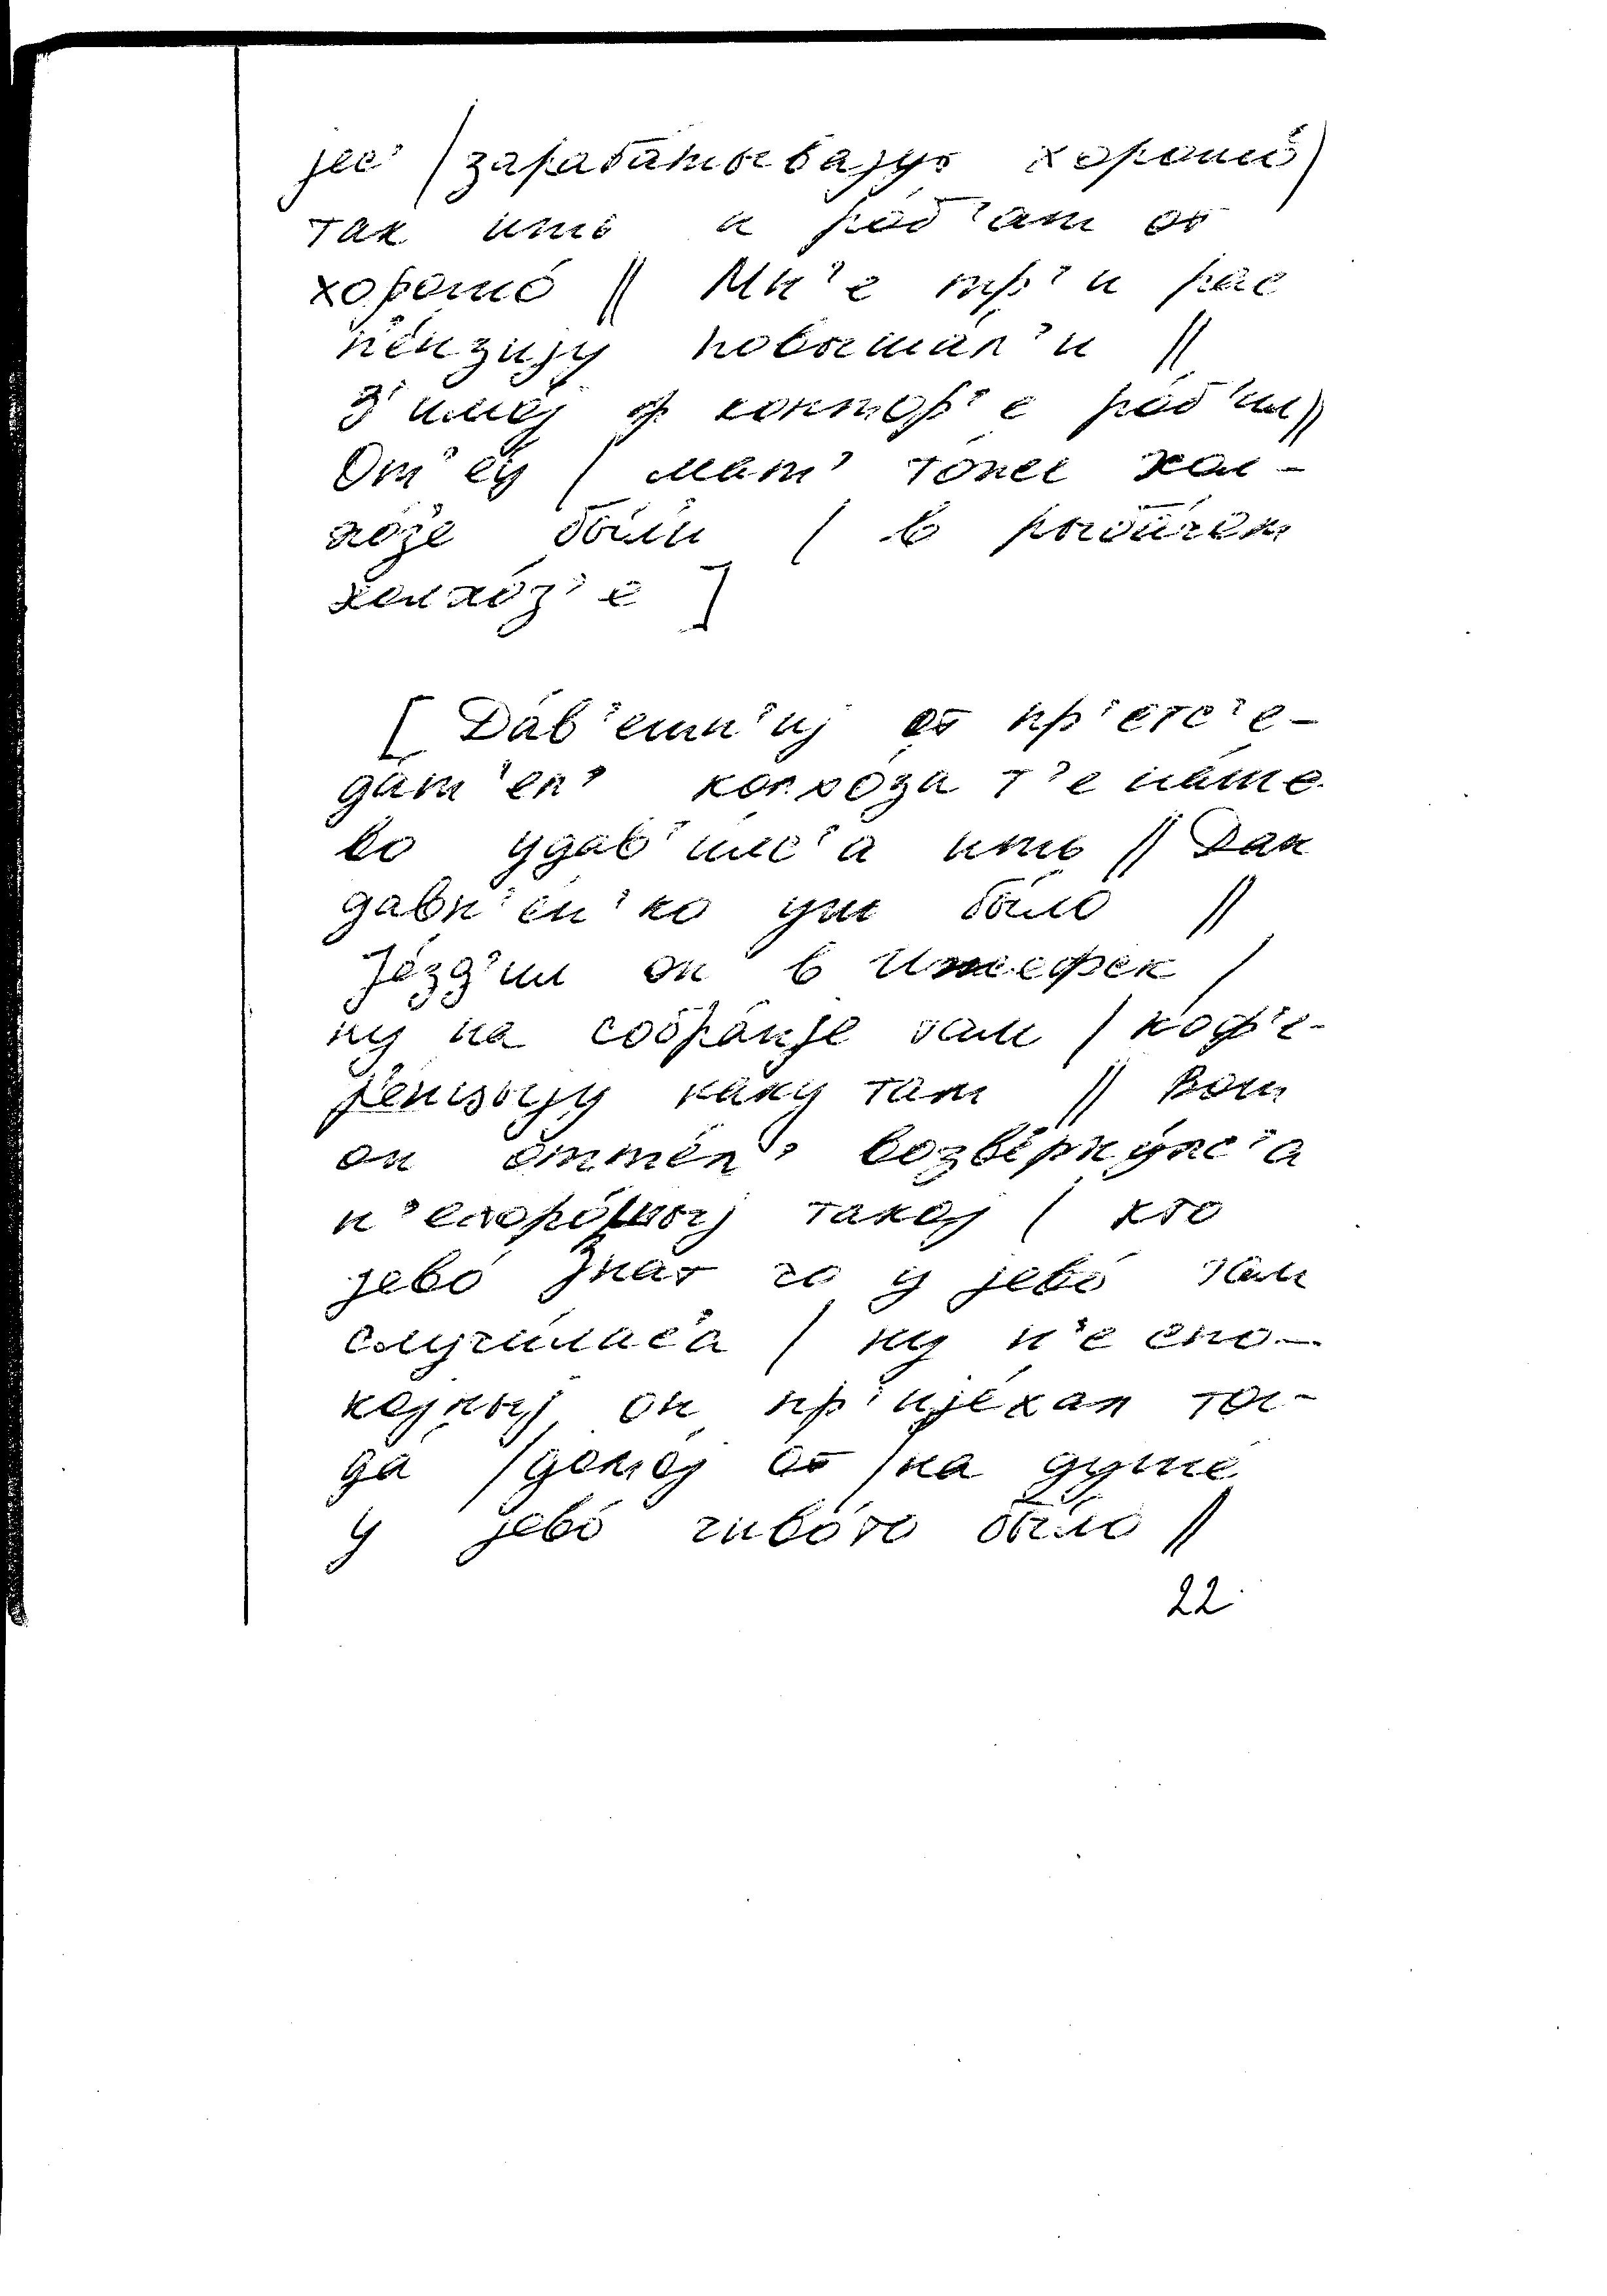 јес' / зараба́тывајут хорошо́ /
так ишь и ро́б'ат от
хорошо́ // Мн'е тр'и рас
п'е́нзију повыша́л'и //
З'имој ф контор'е ро́б'ил //
От'е́ц / мат' то́же кол-
хо́зе бы́ли / в рыба́чем
колхо́з'е ]
[ Да́в'ешн'иј от пр'етс'е-
да́т'ел' колхо́за т'е на́ше-
во удав'и́лс'а ишь // Дак
давн'е́н'ко уш бы́ло //
Је́зд'ил он в Ижефск /
ну на собра́нје там / коф'е-
р'е́нцыју каку там // Вот
он отте́л' возв'ерну́лс'а
н'ехоро́шыј такој / кто
јево́ знат чо у јево́ там
случи́лас'а / ну н'е спо-
којныј он пр'ије́хал тог-
да́ / домо́ј от / на душе́
у јево́ чиво́то бы́ло //
22